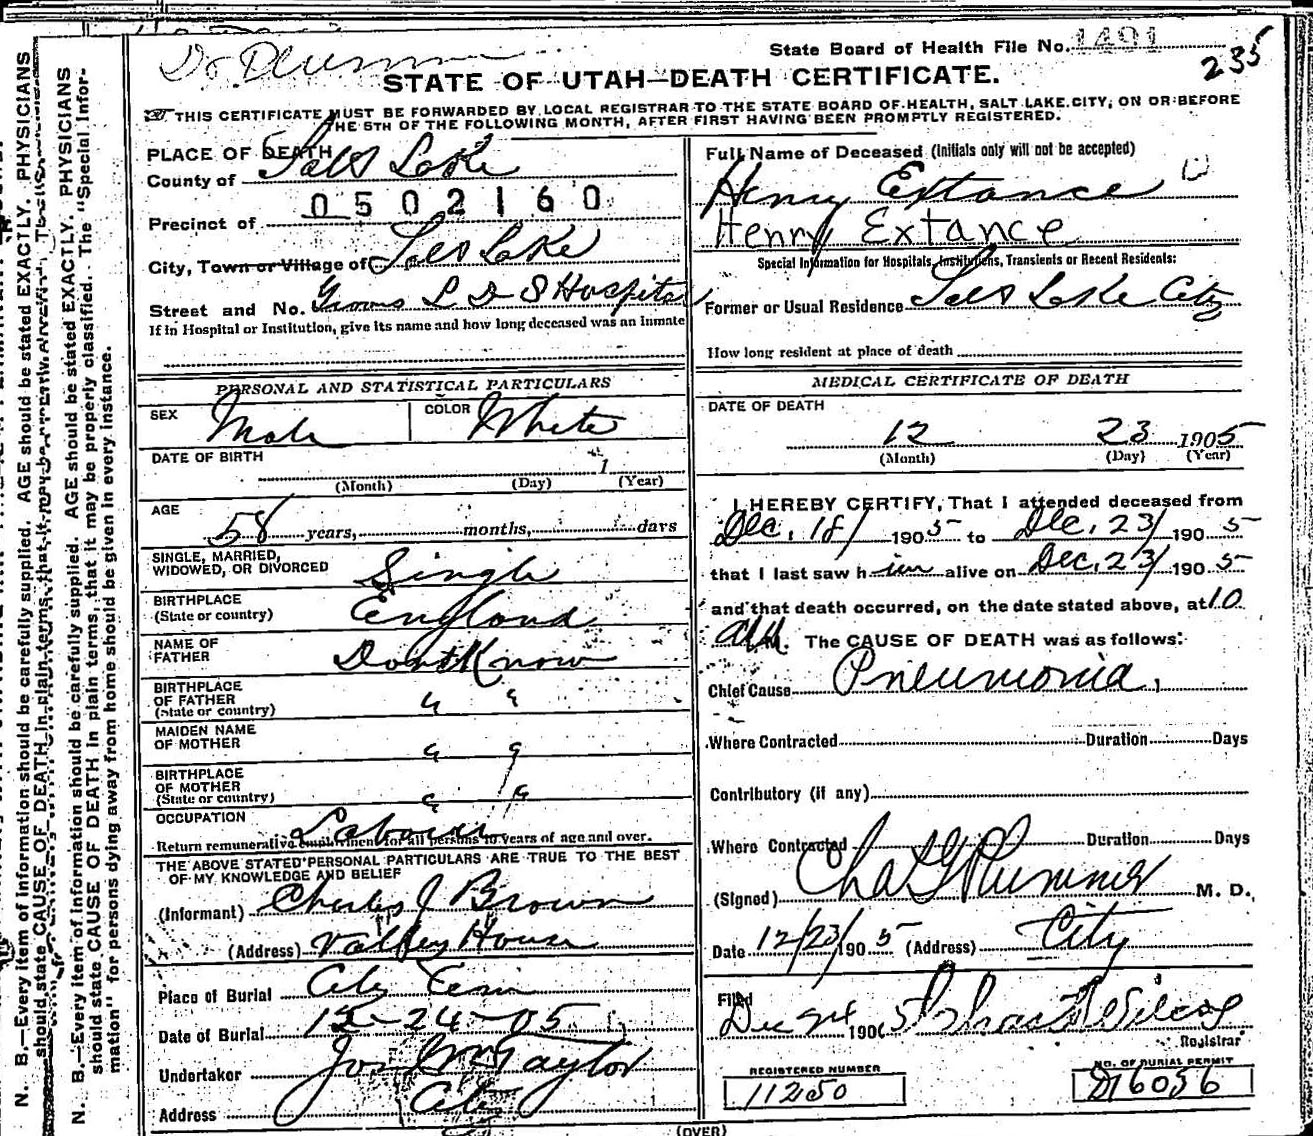 Dr. Plummer
State Board of Health File No. 1491
235
STATE OF UTAH—DEATH CERTIFICATE.
THIS CERTIFICATE MUST BE FORWARDED BY LOCAL REGISTRAR TO THE STATE BOARD OF HEALTH, SALT LAKE CITY, ON OR BEFORE
THE 5TH OF THE FOLLOWING MONTH, AFTER FIRST HAVING BEEN PROMPTLY REGISTERED.
PLACE OF DEATH
County of Salt Lake
0502160
Precinct of
City, Town or Village of Salt Lake
Street and No. Groves L D S Hospital
If in Hospital or Institution, give its name and how long deceased was an inmate
PERSONAL AND STATISTICAL PARTICULARS
SEX Male COLOR White
DATE OF BIRTH
1
(Month) (Day) (Year)
AGE
58 years, months, days
SINGLE, MARRIED,
WIDOWED, OR DIVORCED Single
BIRTHPLACE
(State or country) England
NAME OF
FATHER Dont Know
BIRTHPLACE
OF FATHER
(State or country) " "
MAIDEN NAME
OF MOTHER " "
BIRTHPLACE
OF MOTHER
(State or country) " "
OCCUPATION Laborer
Return remunerative employment for all persons 10 years of age and over.
THE ABOVE STATED PERSONAL PARTICULARS ARE TRUE TO THE BEST
OF MY KNOWLEDGE AND BELIEF
(Informant) Charles J Brown
(Address) Valley House
Place of Burial City Cem
Date of Burial 12-24-05
Undertaker Jos Wm Taylor
Address City
Full Name of Deceased (Initials only will not be accepted)
Henry Extance
Henry Extance
Special Information for Hospitals, Institutions, Transients or Recent Residents:
Former or Usual Residence Salt Lake City
How long resident at place of death
MEDICAL CERTIFICATE OF DEATH
DATE OF DEATH
12 23 1905
(Month) (Day) (Year)
I HEREBY CERTIFY, That I attended deceased from
Dec. 18/ 1905 to Dec. 23/ 1905
that I last saw him alive on Dec. 23/ 1905
and that death occurred, on the date stated above, at 10
A M. The CAUSE OF DEATH was as follows:
Chief Cause Pneumonia.
Where Contracted Duration Days
Contributory (if any)
Where Contracted Duration Days
(Signed) Chas G Plummer M. D.
Date 12/23/1905 (Address) City
Filed Dec 24 1905 Wilcox
Registrar
REGISTERED NUMBER
11250
NO. OF BURIAL PERMIT
D16056
(OVER)
N. B.—Every item of information should be carefully supplied. AGE should be stated EXACTLY. PHYSICIANS
should state CAUSE OF DEATH in plain terms, that it may be properly classified. The "Special
N. B.—Every item of information should be carefully supplied. AGE should be stated EXACTLY. PHYSICIANS
should state CAUSE OF DEATH in plain terms, that it may be properly classified. The "Special Infor-
mation" for persons dying away from home should be given in every instance.